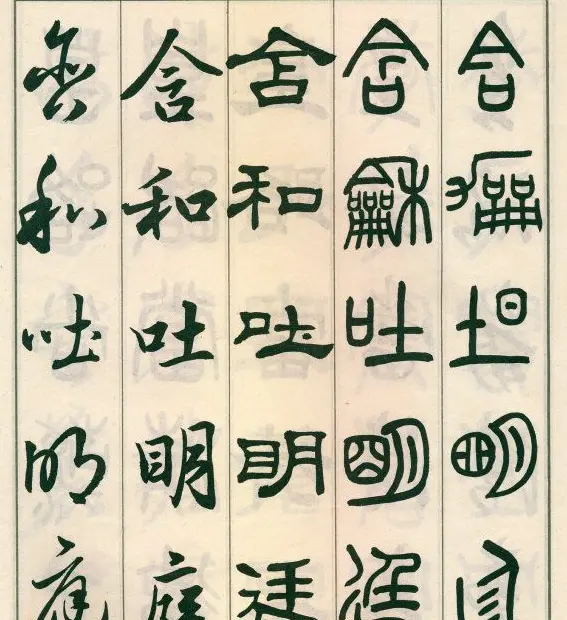 含龢吐明
含龢吐明
含和吐明廷
含和吐明庭
含和吐明庭